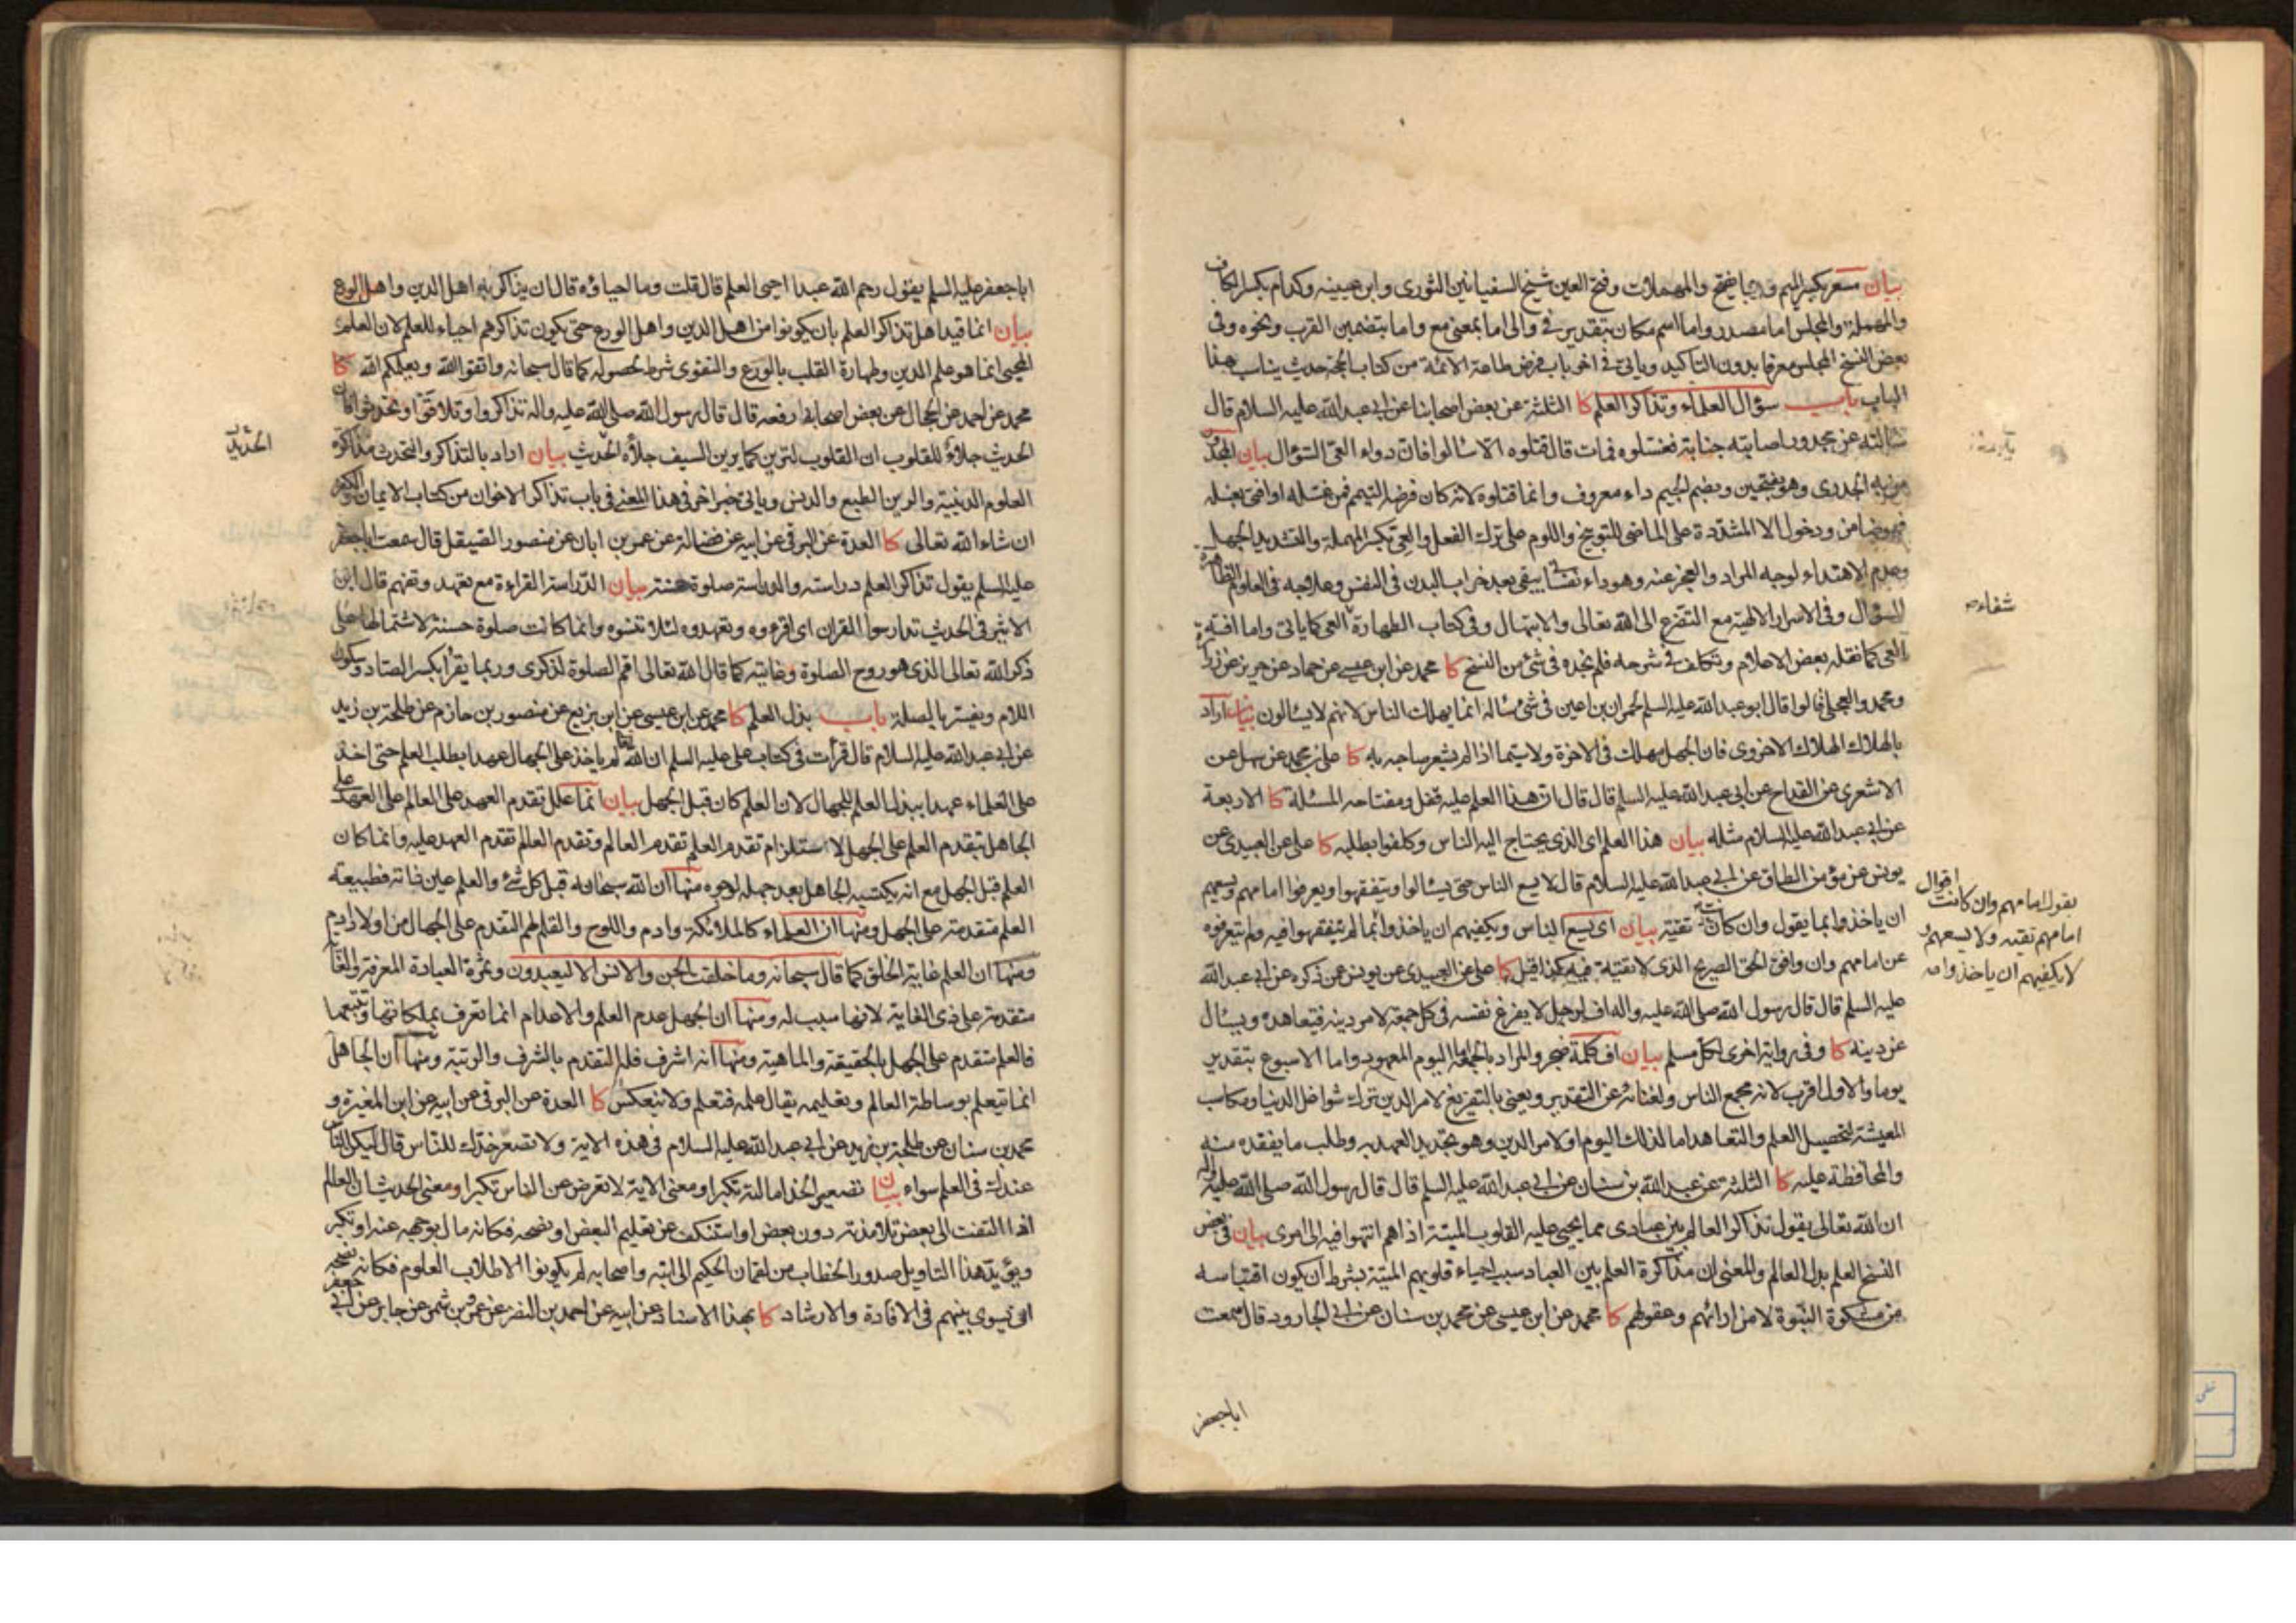 بيان مسعر بكسر الميم وربما يفتح والمهملات وفتح العين شيخ السفيانين الثوري وابن عيينه وكدام بكسر الكاف
والمهملة والمجلس اما مصدر واما اسم مكان بتقدير في والى اما بمعنى مع واما بتضمين القرب ونحوه وفي
بعض النسخ المجلس معرفا بدون التاكيد وياتي في اخر باب فرض طاعة الائمة من كتاب الحجة حديث يناسب هذا
الباب باب سؤال العلماء وتذاكر العلم كا الثلثة عن بعض اصحابنا عن ابي عبد الله عليه السلام قال
سالته عن مجدور اصابته جنابة فغسلوه فمات قال قتلوه الا سالوا فان دواء العي السؤال بيان المجدور
من به الجدري وهو بفتحتين وبضم الجيم داء معروف وانما قتلوه لانه كان فرضه التيمم فمن غسله او افتى بغسله
فهو ضامن ودخول الا المشددة على الماضي للتوبيخ واللوم على ترك الفعل والعي بكسر المهملة والتشديد الجهل
وعدم الاهتداء لوجه المراد والعجز عنه وهو داء نفساني يبقى بعد خراب البدن في النفس وعلاجه في العلوم الظاهرة
السؤال وفي الاسرار الالهية مع التضرع الى الله تعالى والابتهال وفي كتاب الطهارة العي كما ياتي واما افته
العي كما نقله بعض الاعلام وتكلف في شرحه فلم نجده في شئ من النسخ كا محمد عن ابن عيسى عن حماد عن حريز عن زرارة
ومحمد والعجلي قالوا قال ابو عبد الله عليه السلم لحمران بن اعين في شئ سئاله انما يهلك الناس لانهم لا يسالون بيان اراد
بالهلاك الهلاك الاخروى فان الجهل مهلك في الاخرة ولا سيما اذا لم يشعر صاحبه به كا علي بن محمد عن سهل عن
الاشعري عن القداح عن ابي عبد الله عليه السلم قال قال ان هذا العلم عليه قفل ومفتاحه المسئلة كا الاربعة
عن ابي عبد الله عليه السلام مثله بيان هذا العلم اي الذي يحتاج اليه الناس وكلفوا بطلبه كا علي عن العبيدي عن
يونس عن مؤمن الطاق عن ابي عبد الله عليه السلام قال لا يسع الناس حتى يسالوا ويتفقهوا ويعرفوا امامهم ويسعهم
ان ياخذوا بما يقول وان كانت تقية بيان اى يسع الناس ويكفيهم ان ياخذوا بما لم يتفقهوا فيه ولم يتعرفوه
عن امامهم وان وافق الحق الصريح الذي لا تقية فيه كذا قيل كا علي عن العبيدي عن يونس عن ذكره عن ابي عبد الله
عليه السلم قال قال رسول الله صلى الله عليه واله اف لرجل لا يفرغ نفسه في كل جمعة لامر دينه فيتعاهده ويسال
عن دينه كا وفي رواية اخرى لكل مسلم بيان اف كلمة ضجر والمراد بالجمعة اما اليوم المعهود واما الاسبوع بتقدير
يوما والاول اقرب لانه مجمع الناس ولغنائه عن التقدير ويعني بالتفريغ لامر الدين ترك شواغل الدنيا ومكاسب
المعيشة لتحصيل العلم والتعاهد اما لذلك اليوم او لامر الدين وهو تجديد العهد به وطلب ما يفقده منه
والمحافظة عليه كا الثلثة عن عبد الله بن سنان عن ابي عبد الله عليه السلم قال قال رسول الله صلى الله عليه واله
ان الله تعالى يقول تذاكر العالم بين عبادي مما يحيى عليه القلوب الميتة اذا هم انتهوا فيه الى امري بيان في بعض
النسخ العلم بدل العالم والمعنى ان مذاكرة العلم بين العباد سبب احياء قلوبهم الميتة بشرط ان يكون اقتباسه
من مشكوة النبوة لا من ارائهم وعقولهم كا محمد عن ابن عيسى عن محمد بن سنان عن ابي الجارود قال سمعت
شفاءه
يقول امامهم وان كانت اقوال
امامهم تقيه ولا يسعهم و
لا يكفيهم ان ياخذوا به
اباجعفر
اباجعفر عليه السلم يقول رحم الله عبدا احيى العلم قال قلت وما احياؤه قال ان يذاكر به اهل الدين واهل الورع
بيان انما قيد اهل تذاكر العلم بان يكونوا من اهل الدين واهل الورع حتى يكون تذاكرهم احياء للعلم لان العلم
المحيى انما هو علم الدين وطهارة القلب بالورع والتقوى شرط لحصوله كما قال سبحانه واتقوا الله ويعلمكم الله كا
محمد عن احمد عن الحجال عن بعض اصحابه رفعه قال قال رسول الله صلى الله عليه واله تذاكروا وتلاقوا وتحدثوا فان
الحديث جلاؤ للقلوب ان القلوب لترين كما يرين السيف جلاؤه الحديث بيان اراد بالتذاكر والتحدث مذاكرة
العلوم الدينية والرين الطبع والدنس وياتي خبر اخر في هذا المعنى في باب تذاكر الاخوان من كتاب الايمان والكفر
ان شاء الله تعالى كا العدة عن البرقي عن ابيه عن فضالة عن عمر بن ابان عن منصور الصيقل قال سمعت اباجعفر
عليه السلم يقول تذاكر العلم دراسته والدراسة صلوة حسنة بيان الدراسة القراءة مع تعهد وتفهم قال ابن
الاثير في الحديث تدارسوا القران اي اقرءوه وتعهدوه لئلا تنسوه وانما كانت صلوة حسنة لاشتمالها على
ذكر الله تعالى الذي هو روح الصلوة وغايته كما قال الله تعالى اقم الصلوة لذكرى وربما يقرأ بكسر الصاد وسكون
اللام ويفسر بالصلة باب بذل العلم كا محمد عن ابن عيسى عن ابن بزيع عن منصور بن حازم عن طلحة بن زيد
عن ابي عبد الله عليه السلام قال قرأت في كتاب علي عليه السلم ان الله لم ياخذ على الجهال عهدا بطلب العلم حتى اخذ
على العلماء عهدا ببذل العلم للجهال لان العلم كان قبل الجهل بيان انما علل تقدم العهد على العالم على العهد على
الجاهل بتقدم العلم على الجهل لاستلزام تقدم العلم تقدم العالم وتقدم العالم تقدم العهد عليه وانما كان
العلم قبل الجهل مع انه يكتسبه الجاهل بعد جهله لوجوه منها ان الله سبحانه قبل كل شئ والعلم عين ذاته فطبيعة
العلم متقدمة على الجهل ومنها ان العلماء كالملائكة وادم واللوح والقلم لهم التقدم على الجهال من اولاد ادم
ومنها ان العلم غاية الخلق كما قال سبحانه وما خلقت الجن والانس الا ليعبدون وثمرة العبادة المعرفة والغاية
متقدمة على ذي الغاية لانها سبب له ومنها ان الجهل عدم العلم والاعدام انما تعرف بملكاتها وتتبعها
فالعلم متقدم على الجهل بالحقيقة والماهية ومنها انه اشرف فله التقدم بالشرف والرتبة ومنها ان الجاهل
انما يتعلم بوساطة العالم وتعليمه يقال علمه فتعلم ولا ينعكس كا العدة عن البرقي عن ابيه عن ابن المغيرة و
محمد بن سنان عن طلحة بن زيد عن ابي عبد الله عليه السلام في هذه الاية ولا تصعر خدك للناس قال ليكن الناس
عندك في العلم سواء بيان تصعير الخد امالته تكبرا ومعنى الاية لا تعرض عن الناس تكبرا ومعنى الحديث ان العالم
اذا التفت الى بعض تلامذته دون بعض او استنكف عن تعليم البعض او نصحه فكانه مال بوجهه عنه او تكبر
ويؤيد هذا التاويل صدور الخطاب من لقمان الحكيم الى ابنه واصحابه لم يكونوا الا طلاب العلوم فكانه نصحه
ان يسوى بينهم في الافادة والارشاد كا بهذا الاسناد عن ابيه عن احمد بن النضر عن عمرو بن شمر عن جابر عن ابي جعفر
الحديث